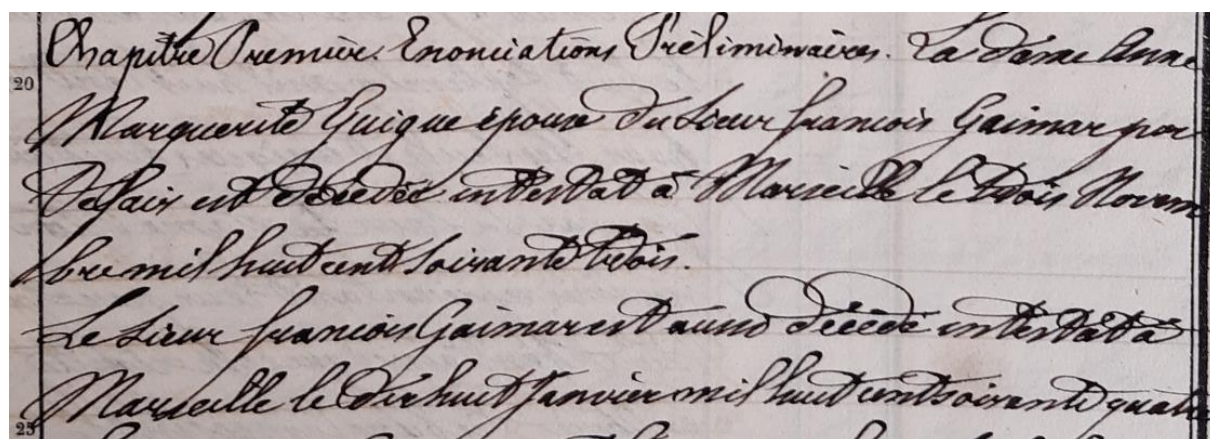 Chapitre Premier. Enonciations Préliminaires. La dame Anne
20
Marguerite Guigue épouse du Sieur françois Gaimar par
est décédée intestat à Marseille le trois Novem
bre mil huit cent soixante trois.
Le Sieur françois Gaimar est aussi décédé intestat à
Marseille le dix huit Janvier mil huit cent soixante quatre
25